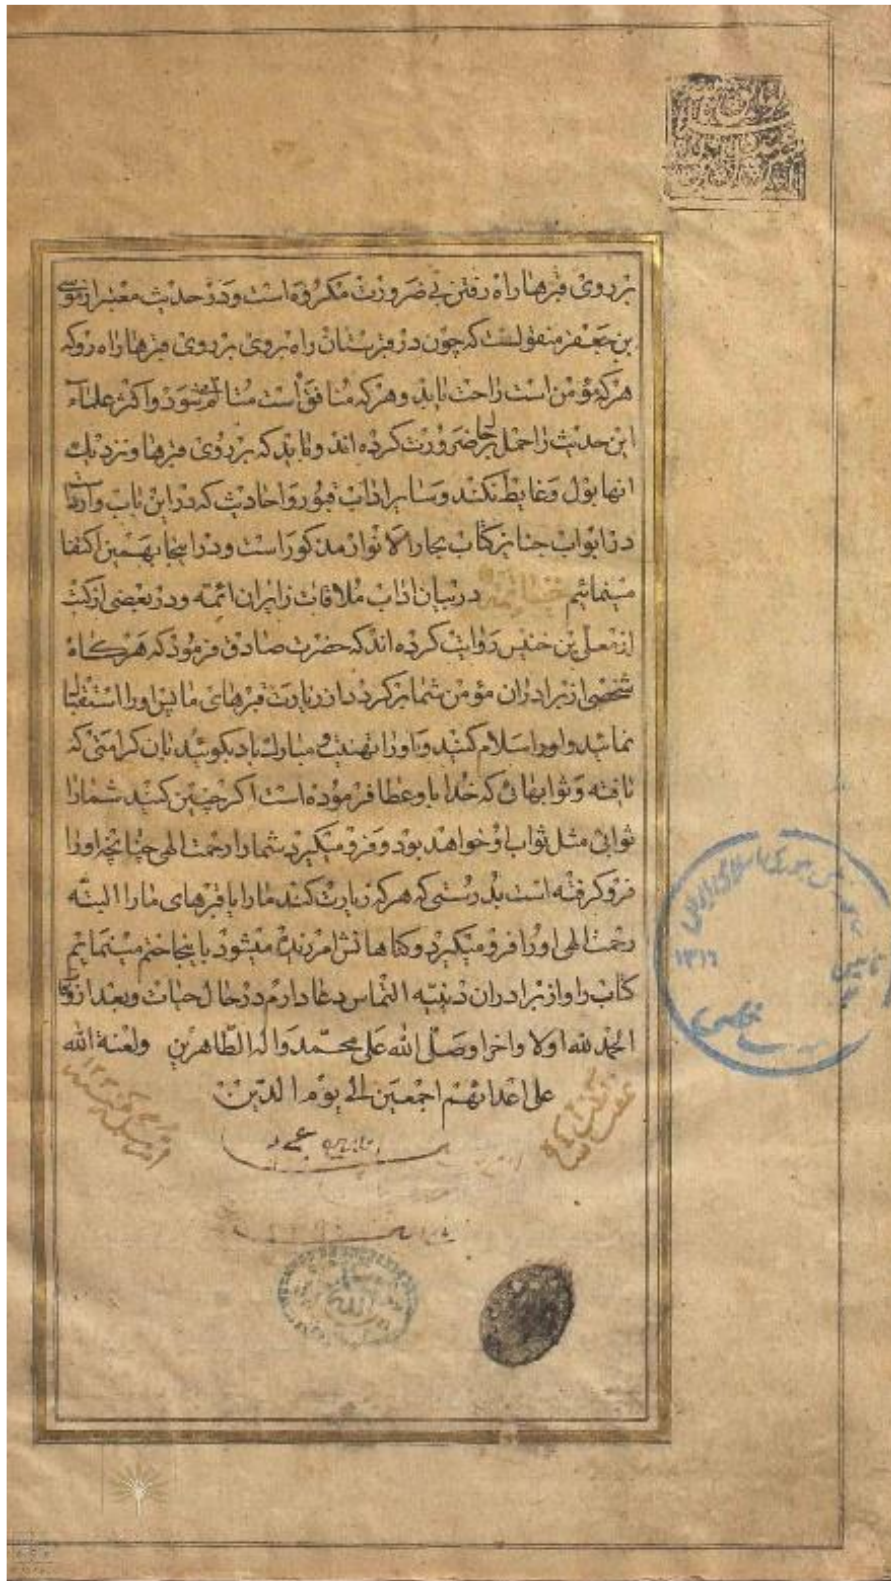 بر روی قبرها راه رفتن بی ضرورت مکروه است و در حدیث معتبر از موسی
بن جعفر منقولست که چون در قبرستان راه روی بر روی قبرها راه رو که
هر که مؤمن است راحت یابد و هر که منافق است متالم شود و اکثر علماء
این حدیث را حمل بر حال ضرورت کرده اند و باید که بر روی قبرها و نزدیک
انها بول و غایط نکنند و سایر اداب قبور و احادیث که در این باب وارد
در ابواب جنایز کتاب بحار الانوار مذکور است و در اینجا بهمین اکتفا
مینمائیم خاتمه در بیان اداب ملاقات زایران ائمه و در بعضی از کتب
از معلی بن خنیس روایت کرده اند که حضرت صادق فرمود که هر کاه
شخصی از برادران مؤمن شما بر کردد از زیارت قبرهای ما پس او را استقبال
نمائید و او را سلام کنید و او را تهنیت و مبارک باد بکوئید بان کرامتی که
یافته و ثوابهائی که خدا باو عطا فرموده است اکر چنین کنید شما را
ثوابی مثل ثواب او خواهد بود و فرو میکیرد شما را رحمت الهی چنانچه او را
فرو کرفته است بدرستی که هر که زیارت کند ما را یا قبرهای ما را البته
رحمت الهی او را فرو میکیرد و کناهانش امرزیده میشود باینجا ختم مینمائیم
کتاب را و از برادران دینیه التماس دعا دارم در حال حیات و بعد از وفات
الحمد لله اولا و اخرا و صلی الله علی محمد و اله الطاهرین و لعنة الله
علی اعدائهم اجمعین الی یوم الدین
۱۳۱۶
الله